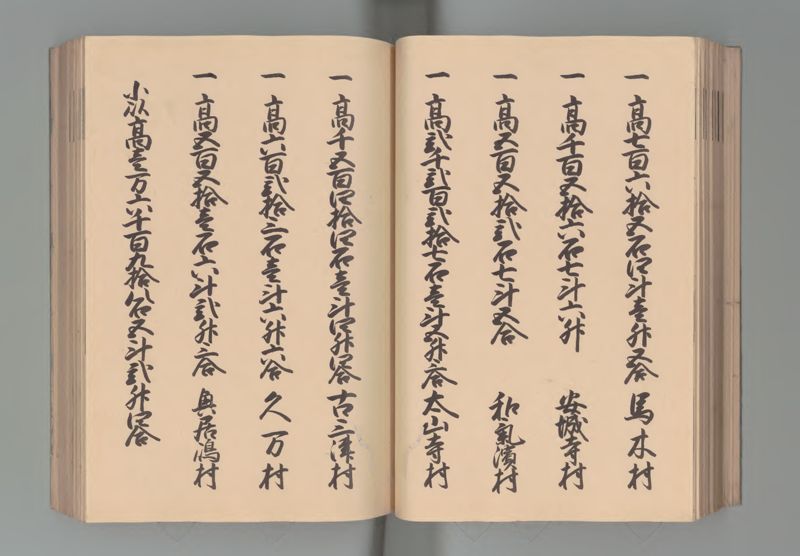 一 高七百六拾五石四斗壱升五合 馬木村
一 高千百五拾六石七斗六升 安城寺村
一 高五百五拾弐石七斗五合 和気濱村
一 高弐千弐百弐拾七石壱斗五升六合 太山寺村
一 高千五百四拾四石壱斗四升四合 古三津村
一 高六百弐拾三石壱斗六升六合 久万村
一 高五百五拾壱石六斗弐升六合 奥居嶋村
小以高壱万六千百九拾八石五斗弐升四合